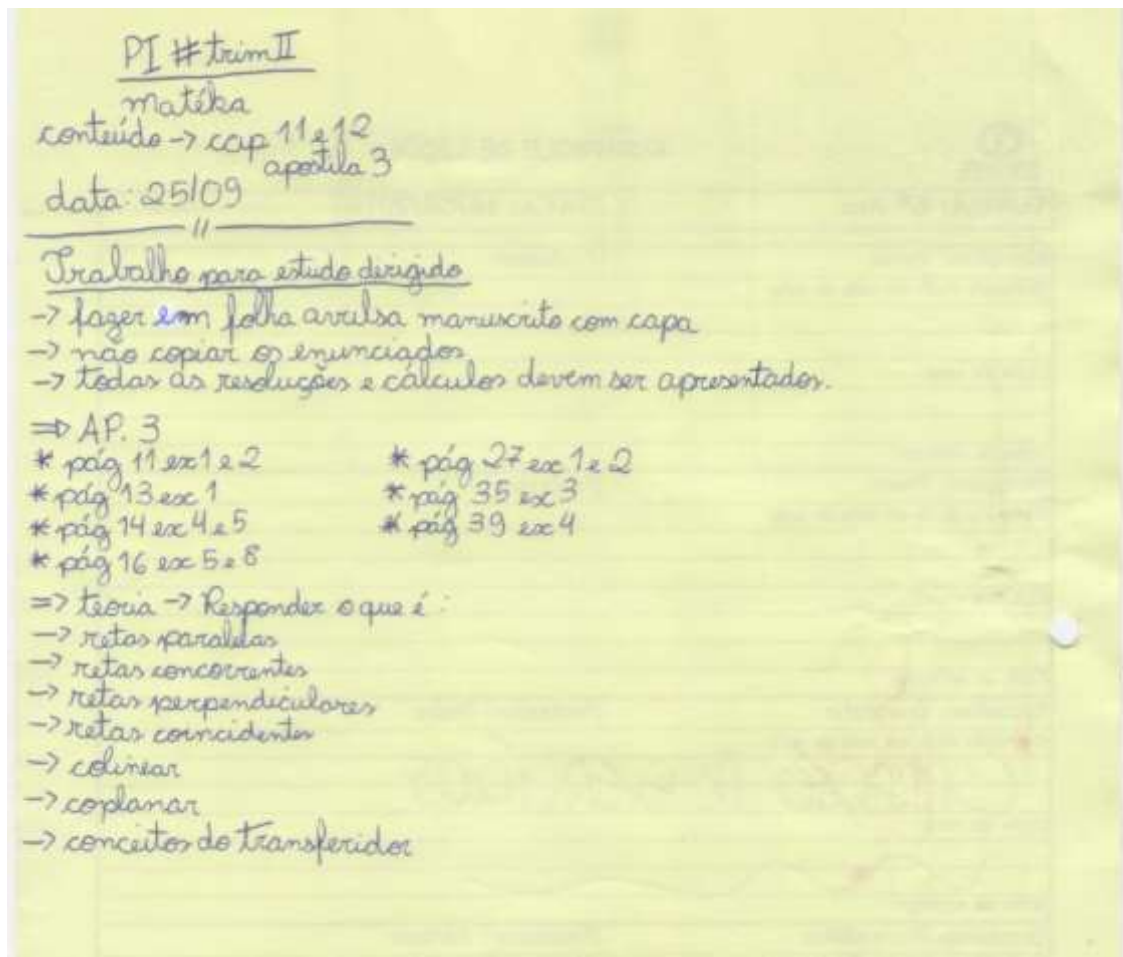 PI # trim II
matéka
conteúdo -> cap 11 e 12
apostila 3
data: 25/09
//
Trabalho para estudo derigido
-> fazer em folha avulsa manuscrito com capa
-> não copiar os enunciados
-> todas as resoluções e cálculos devem ser apresentados.
=> AP. 3
* pág 11 ex 1 e 2
* pág 27 ex 1 e 2
* pág 13 ex 1
* pág 35 ex 3
* pág 14 ex 4 e 5
* pág 39 ex 4
* pág 16 ex 5 e 8
=> teoria -> Responder o que é:
-> retas paralelas
-> retas concorrentes
-> retas perpendiculares
-> retas coincidentes
-> colinear
-> coplanar
-> conceitos do transferidor